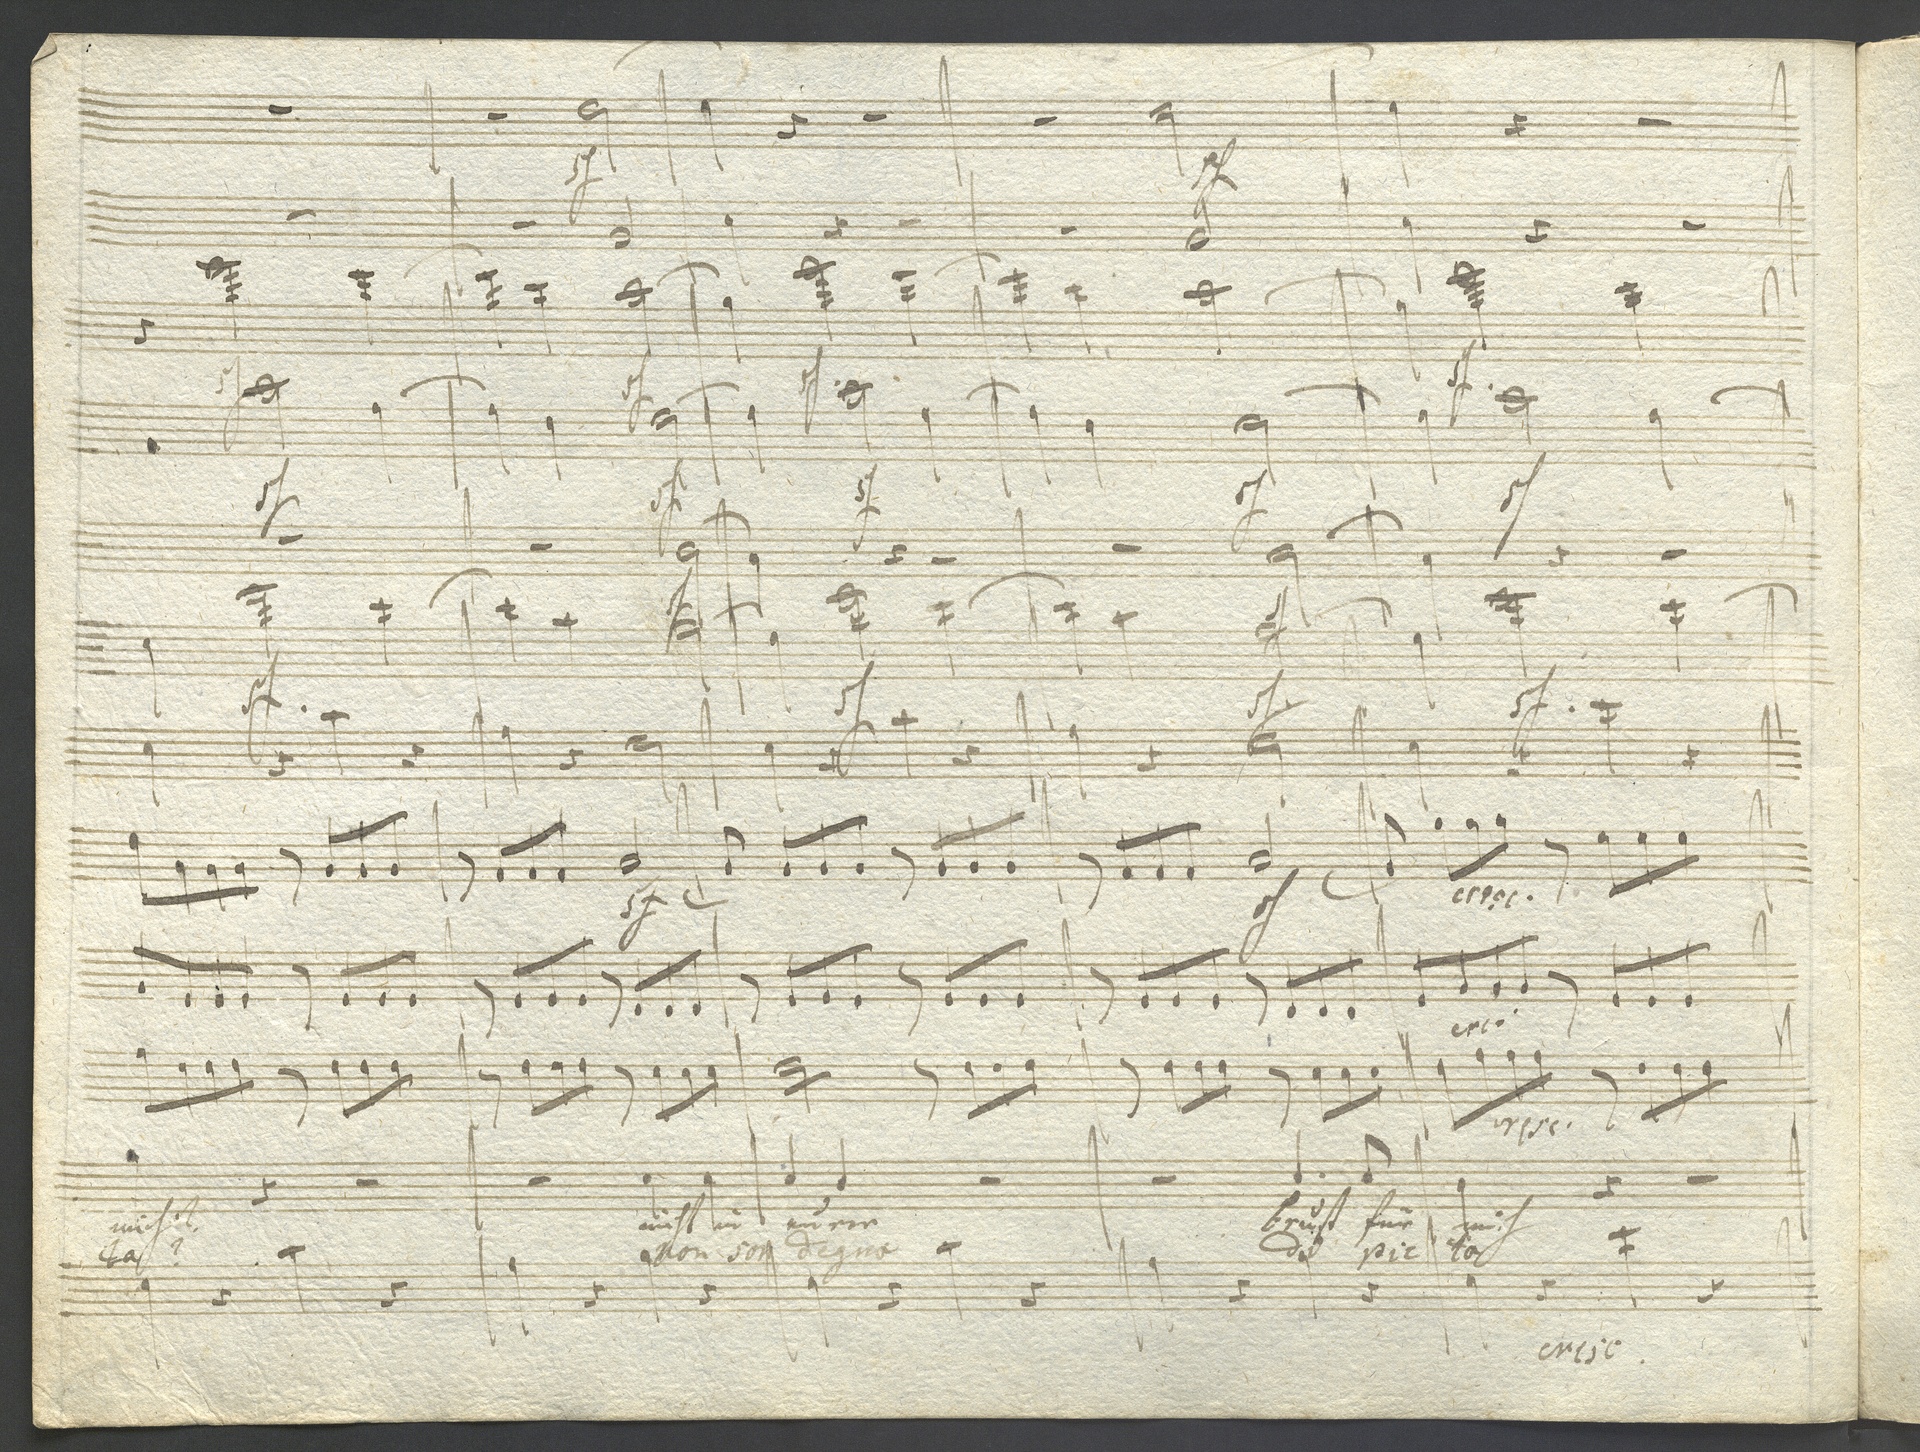 sf sf
sf sf sf sf
sf sf sf sf sf
sf
sf. sf sf. sf.
sf sf cresc.
cresc.
cresc.
nicht in eurer Brust für mich
ta? non son degno di pie ta
cresc.